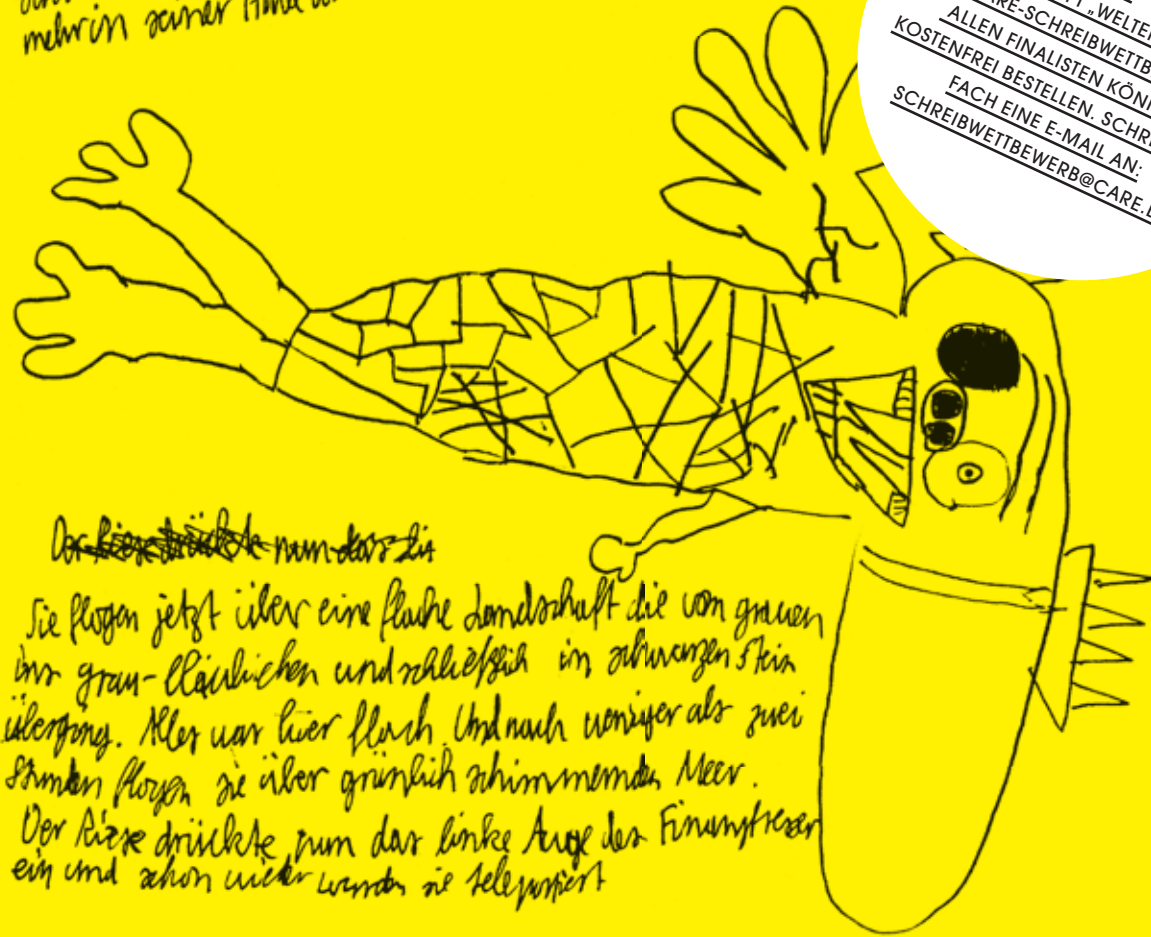 mehr in seiner Hand
"WELTEN
RE-SCHREIBWETTB
ALLEN FINALISTEN KÖN
KOSTENFREI BESTELLEN. SCHR
FACH EINE E-MAIL AN:
SCHREIBWETTBEWERB@CARE.
Der Riese drückte nun das Lin
Sie flogen jetzt über eine flache Landschaft die vom grauen
ins grau-bläulichen und schließlich in schwarzen Stein
überging. Alles war hier flach. Und nach weniger als zwei
Stunden flogen sie über grünlich schimmerndes Meer.
Der Riese drückte nun das linke Auge des Finanzfresser
ein und schon wieder wurden sie teleportiert